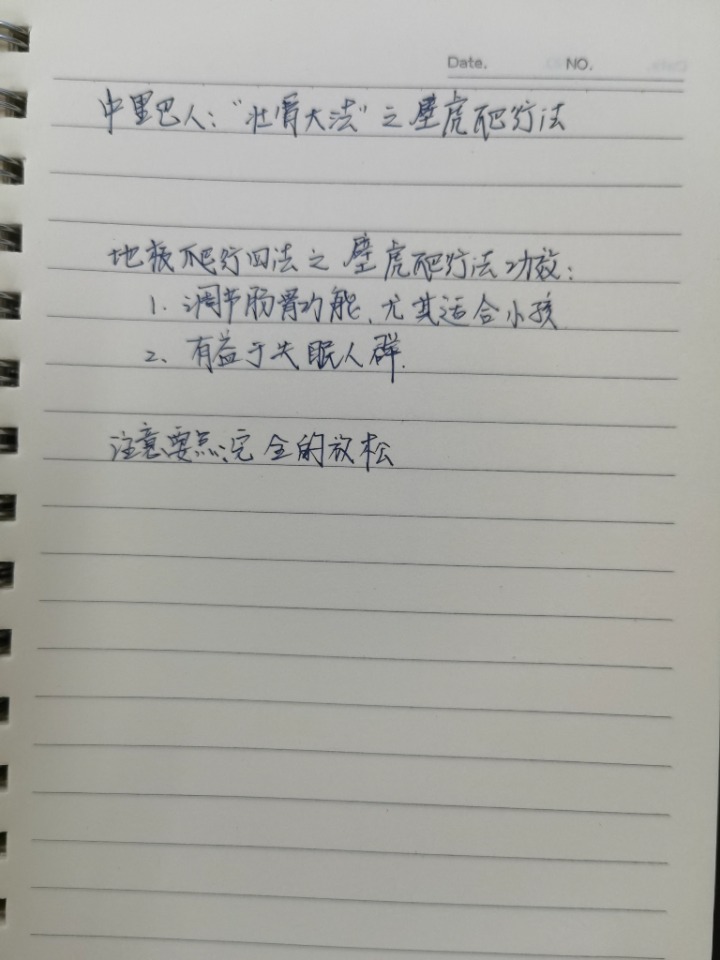 Date. NO.
中里巴人:“壮骨大法”之壁虎爬行法
地板爬行四法之壁虎爬行法功效:
1. 调节肠胃功能、尤其适合小孩
2、有益于失眠人群.
注意要点:完全的放松